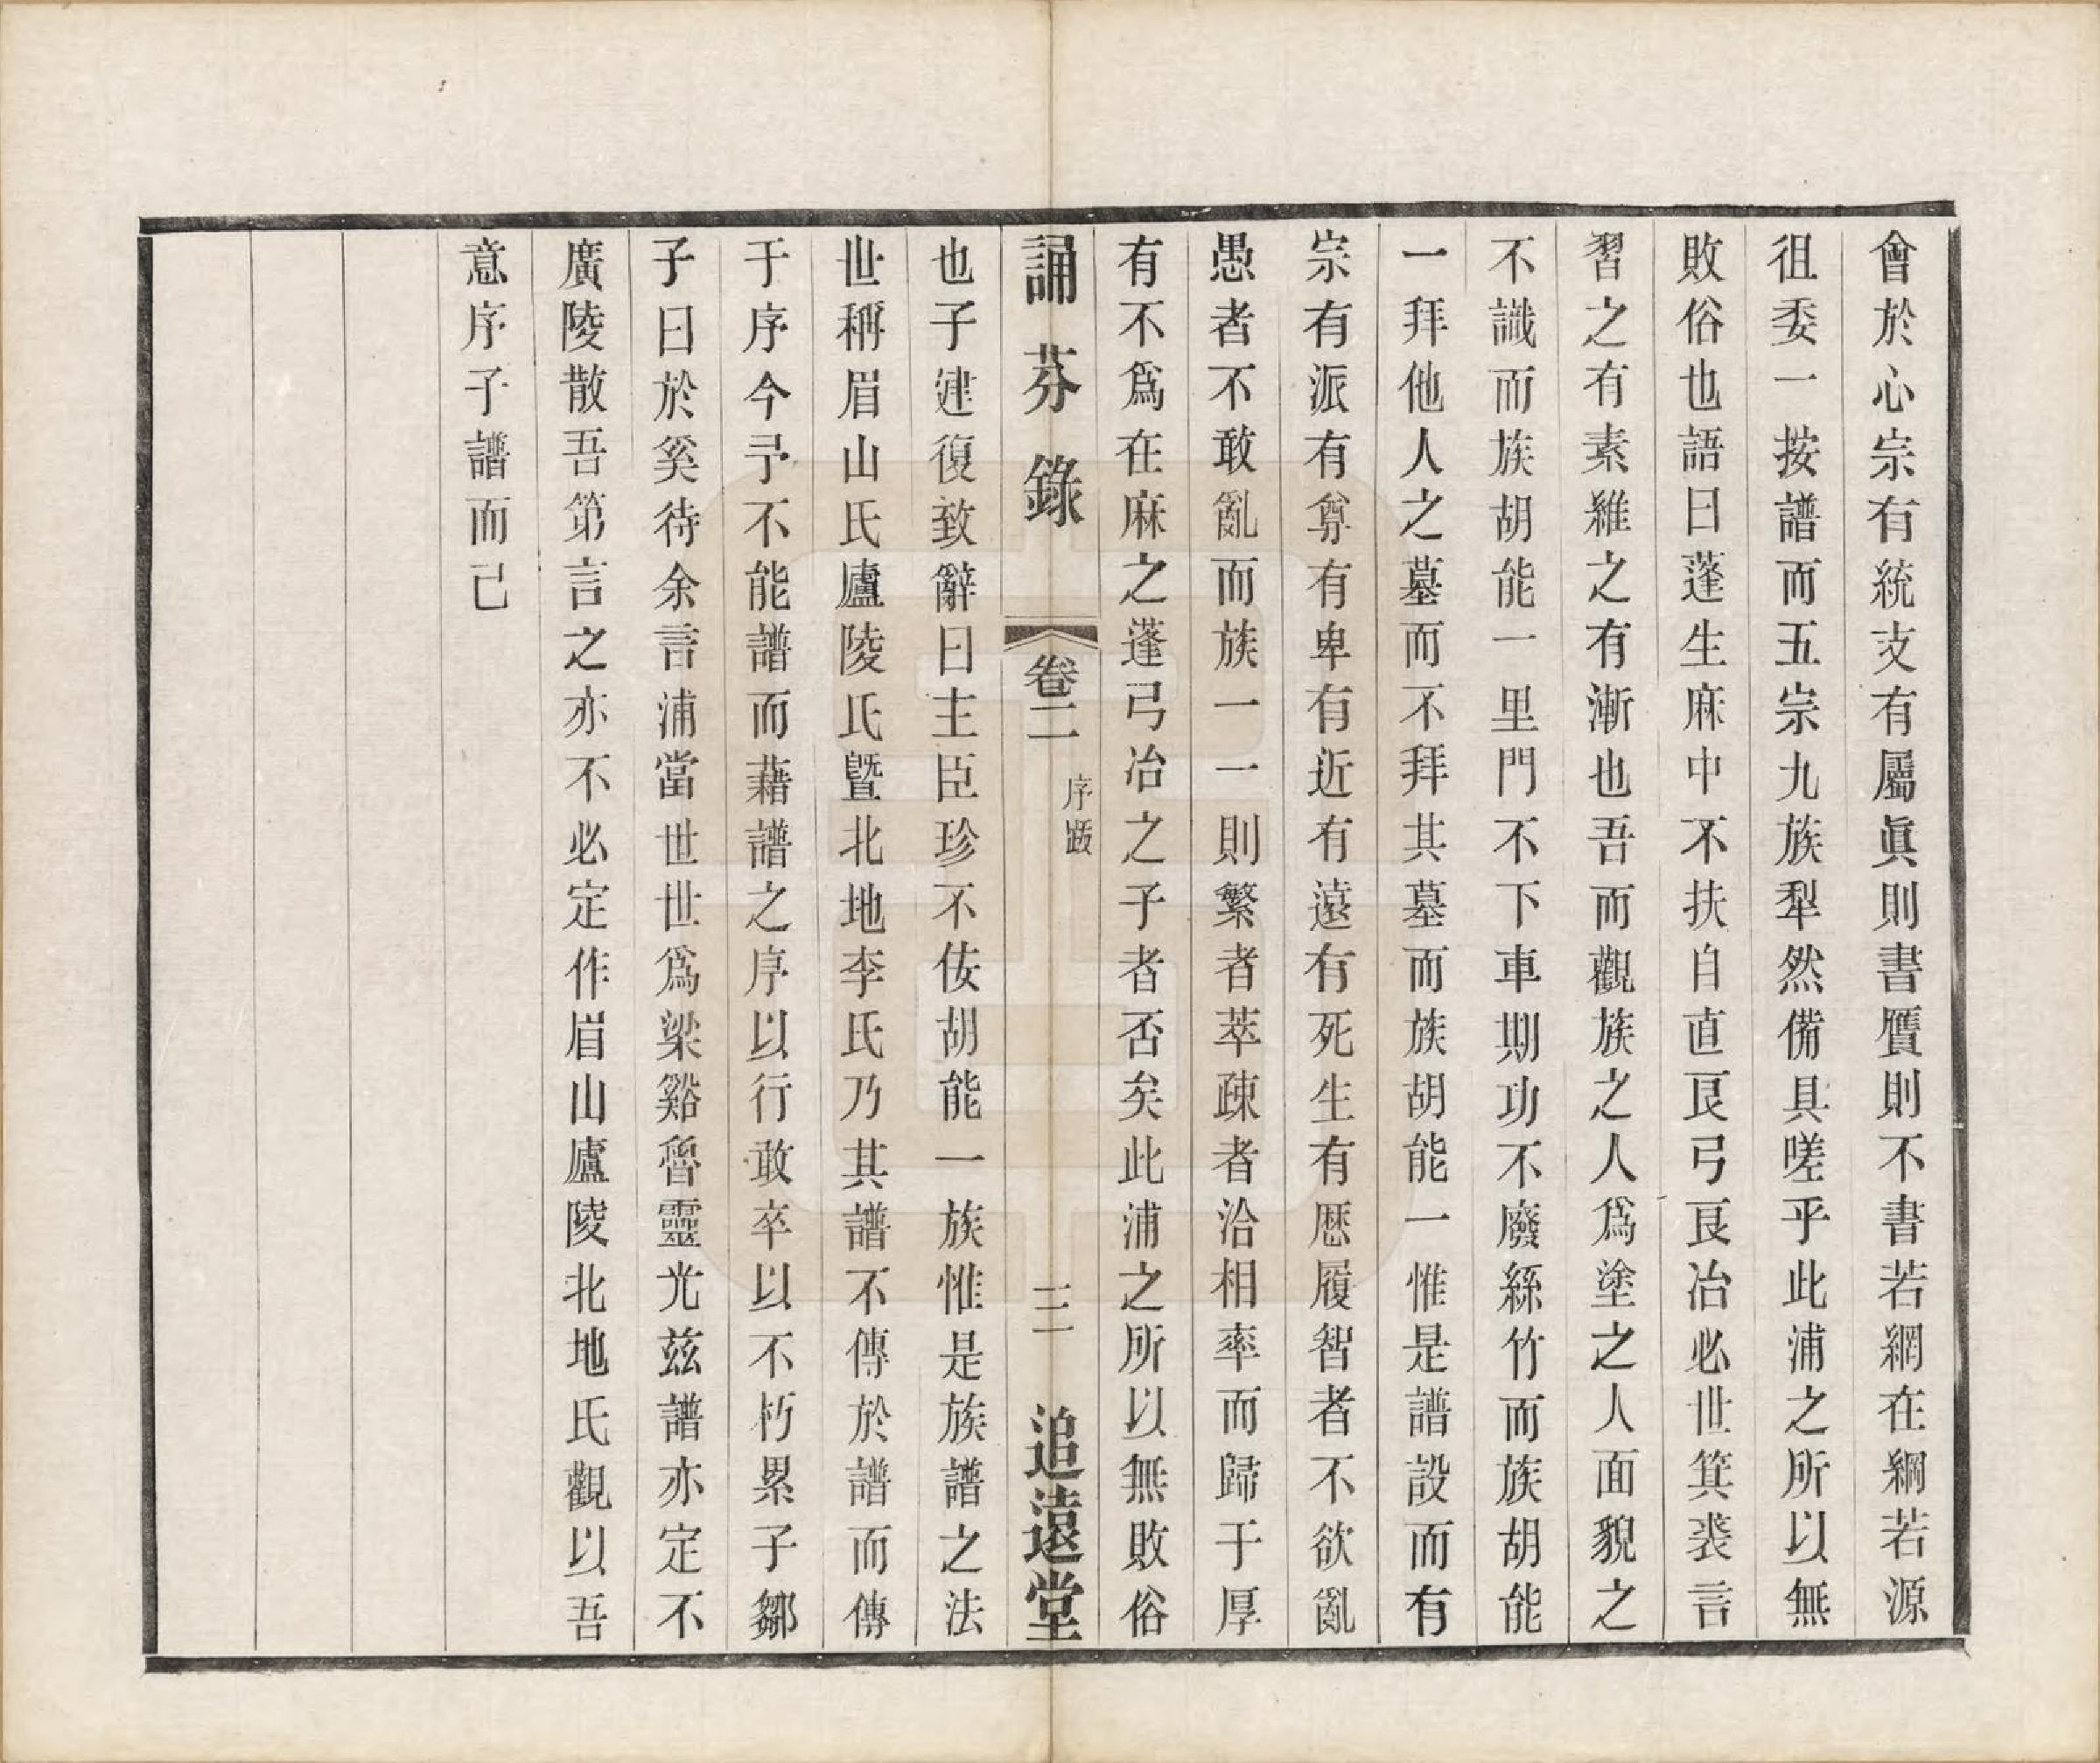 會於心宗有統支有屬眞則書贋則不書若網在綱若源
徂委一按譜而五宗九族犁然備具嗟乎此浦之所以無
敗俗也語曰蓬生麻中不扶自直良弓良冶必世箕裘言
習之有素維之有漸也吾而觀族之人爲塗之人面貌之
不識而族胡能一里門不下車期功不廢絲竹而族胡能
一拜他人之墓而不拜其墓而族胡能一惟是譜設而有
宗有派有尊有卑有近有遠有死生有歷履智者不欲亂
愚者不敢亂而族一一則繁者萃疎者洽相率而歸于厚
有不爲在麻之蓬弓冶之子者否矣此浦之所以無敗俗
誦芬錄 卷二 序跋 三 追遠堂
也子建復致辭曰主臣珍不佞胡能一族惟是族譜之法
世稱眉山氏廬陵氏曁北地李氏乃其譜不傳於譜而傳
于序今予不能譜而藉譜之序以行敢卒以不朽累子鄒
子曰於奚待余言浦當世世爲梁谿魯靈光茲譜亦定不
廣陵散吾第言之亦不必定作眉山廬陵北地氏觀以吾
意序子譜而已